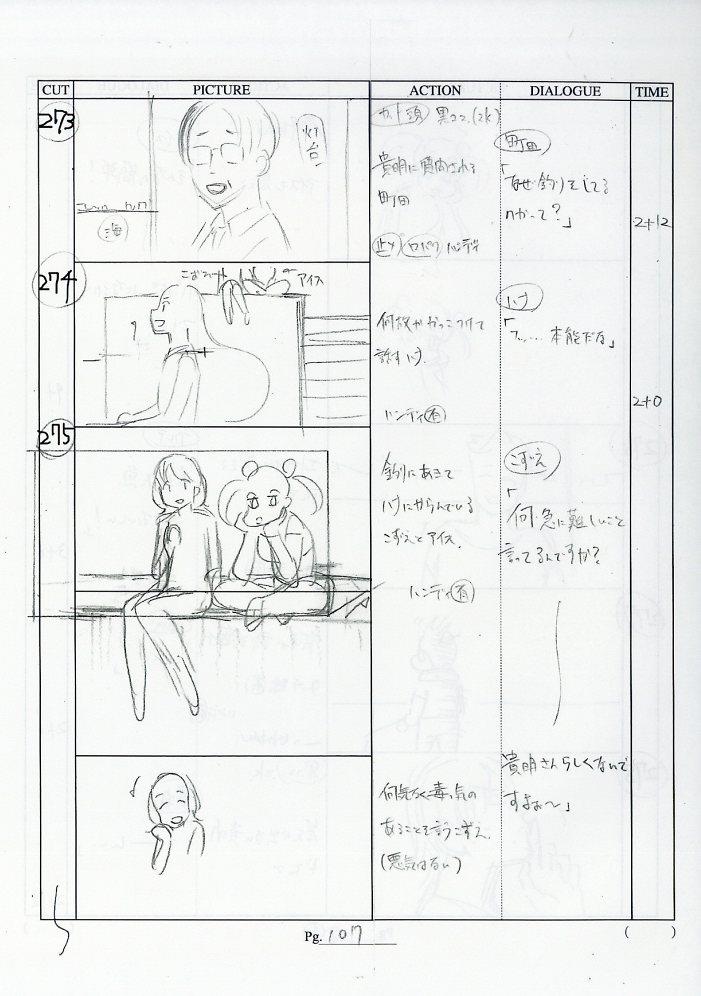 CUT PICTURE ACTION DIALOGUE TIME
273
灯台
海
カット頭 黒コマ(2k)
貴明に質問される
町田
止メ 口パク ハンディ
町田
「なぜ釣りをしてる
のかって?」
2+12
274
こずえ
アイス
何故かかっこつけて
話すハゲ
ハンディ有
ハゲ
「フ……本能だな」
2+0
275
釣りにあきて
ハゲにからんでいる
こずえとアイス.
ハンディ有
こずえ
「何急に難しいこと
言ってるんですか?
何気なく毒っ気の
あることを言うこずえ.
(悪気はない)
貴明さんらしくないで
すよぉ〜」
Pg. 107
( )